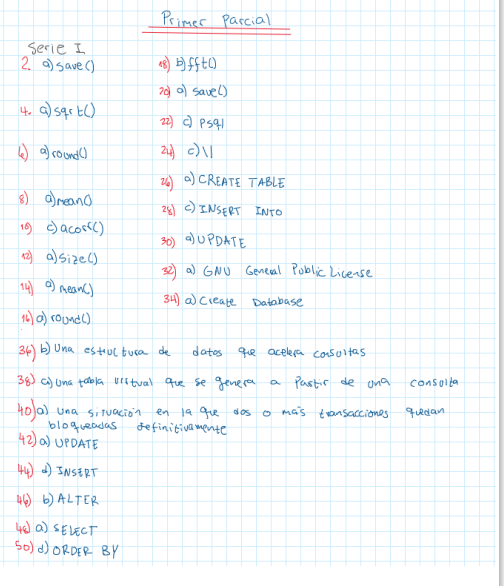 Primer Parcial
Serie I
2. a) save()
4. a) sqrt()
6) a) round()
8) a) mean()
10) c) acosf()
12) a) size()
14) a) mean()
16) a) round()
18) b) fft()
20) a) save()
22) c) psql
24) c) \l
26) a) CREATE TABLE
28) c) INSERT INTO
30) a) UPDATE
32) a) GNU General Public License
34) a) Create Database
36) b) Una estructura de datos que acelera consultas
38) c) Una tabla virtual que se genera a partir de una consulta
40) a) Una situación en la que dos o más transacciones quedan
bloqueadas definitivamente
42) a) UPDATE
44) d) INSERT
46) b) ALTER
48) a) SELECT
50) d) ORDER BY